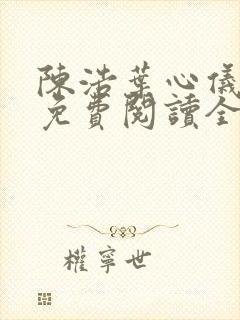 陳浩葉心儀
免費閱讀全
權寧世